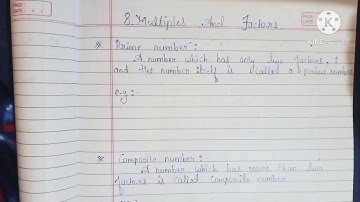 8. Multiples And Factors.
* Prime number :-
A number which has only two factors, 1
and the number itself is called a prime number
e.g :-
* Composite number :-
A number which has more than two
factors is called composite number